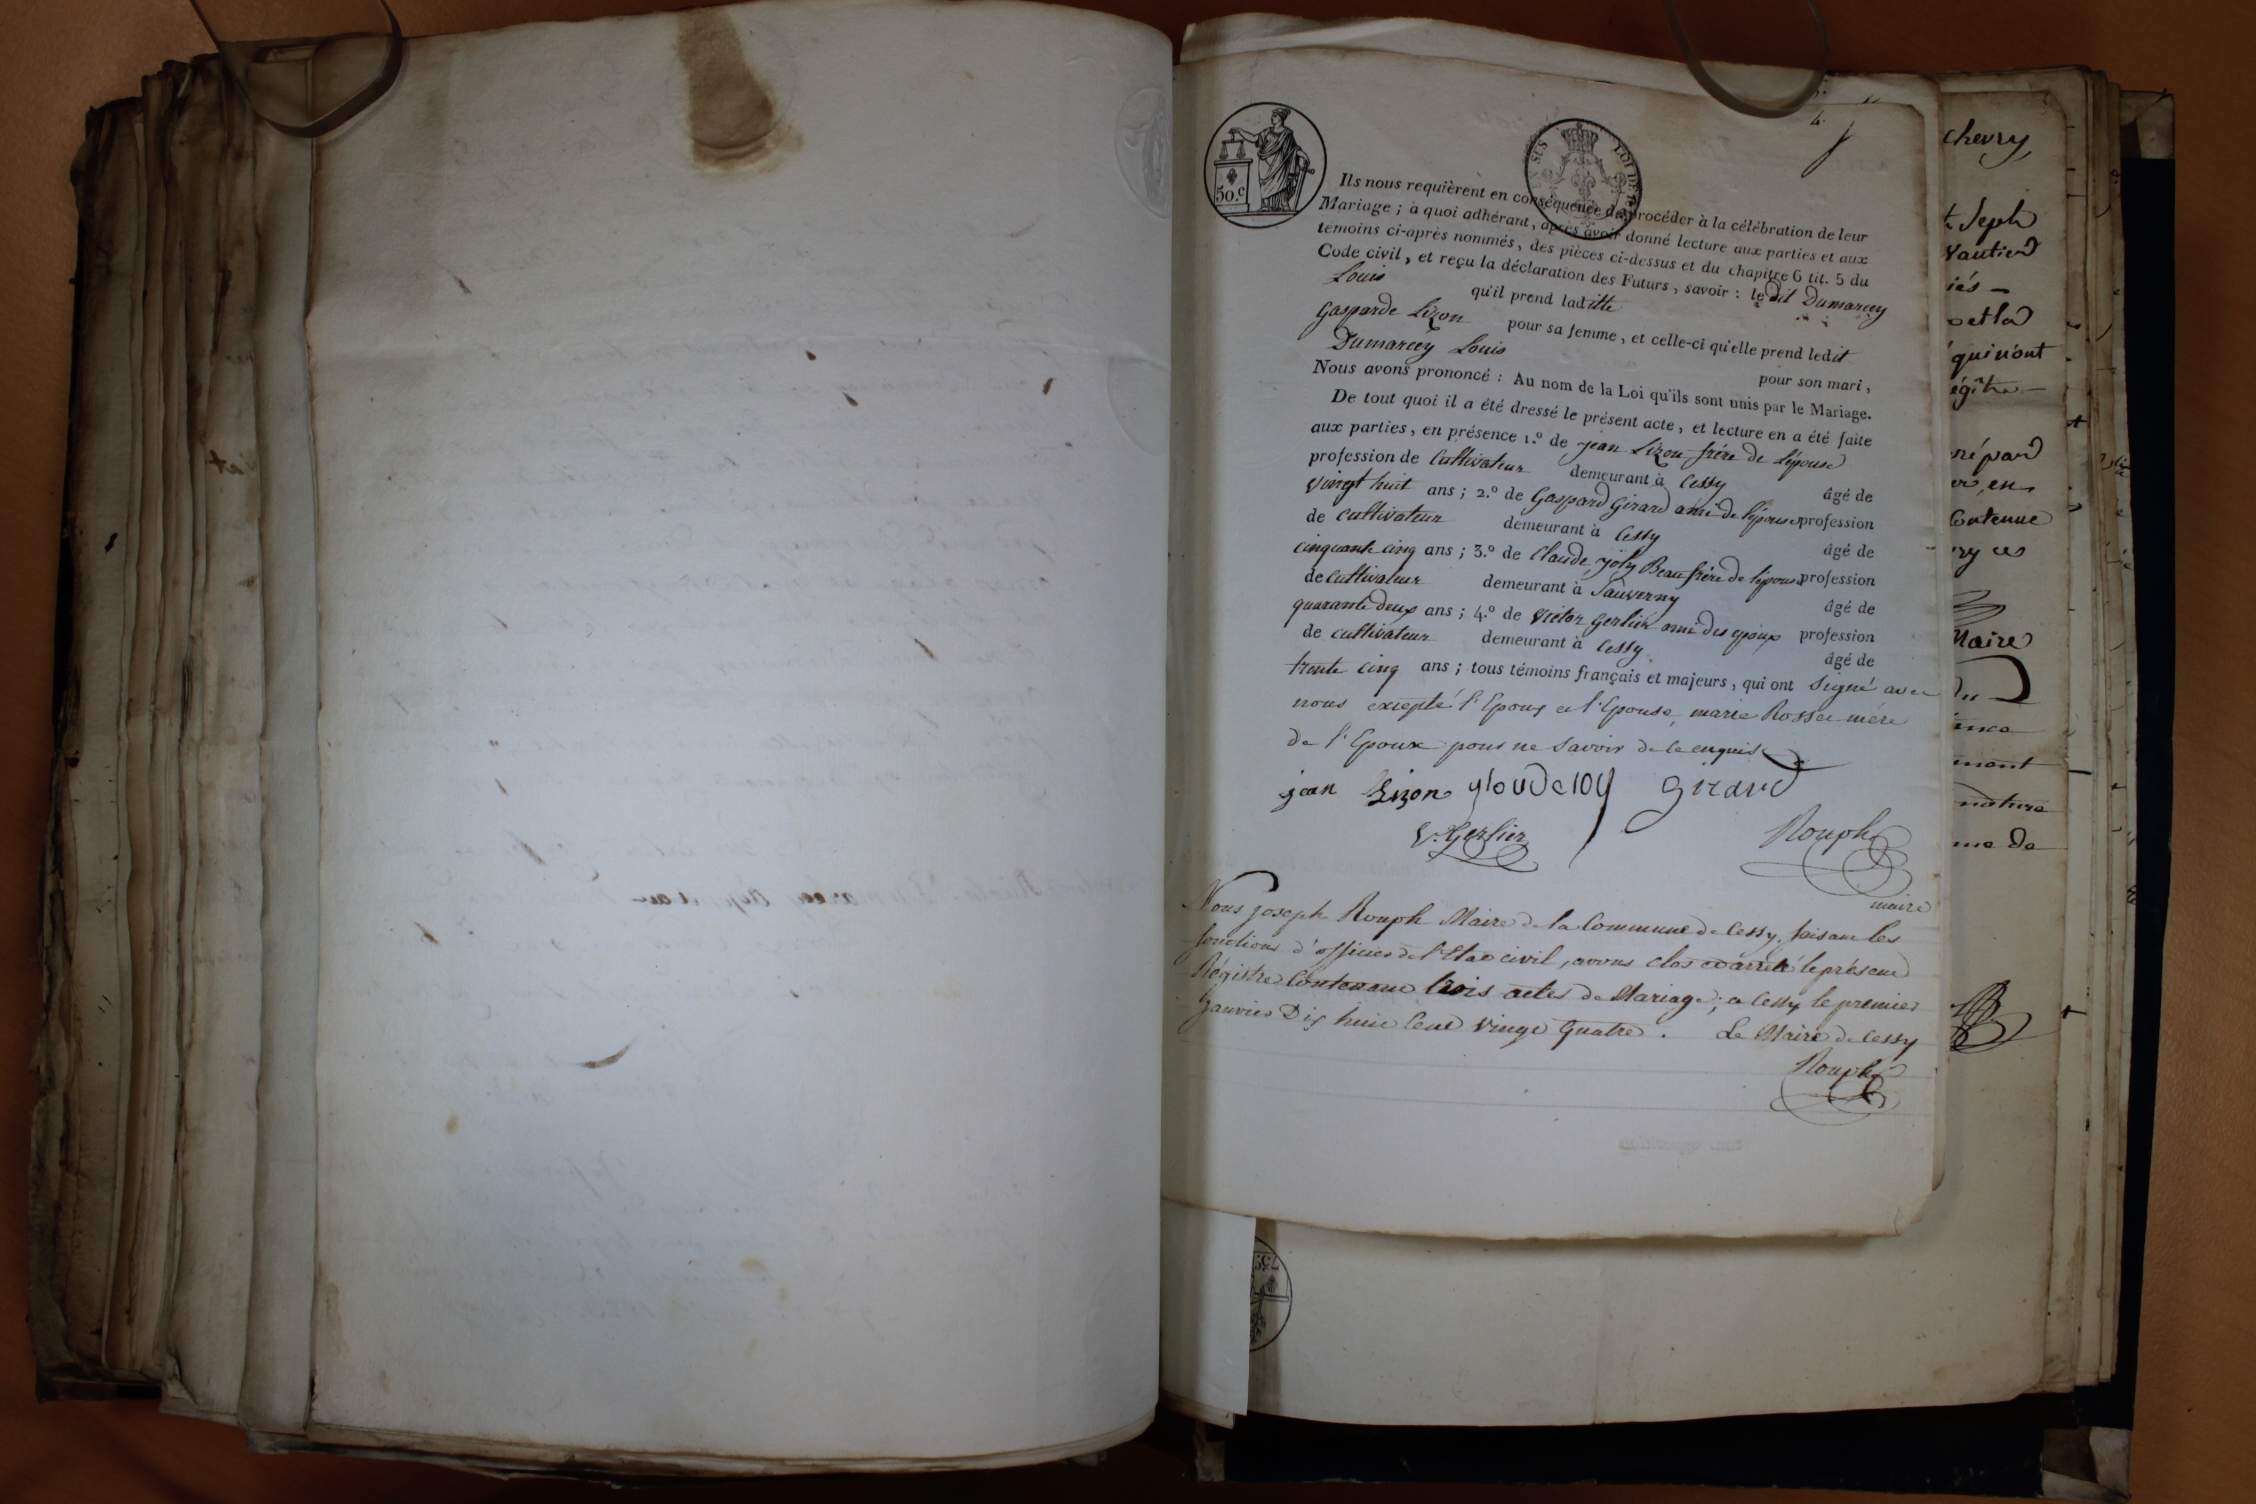 50.c
4.
Ils nous requièrent en conséquence de procéder à la célébration de leur
Mariage ; à quoi adhérant, après avoir donné lecture aux parties et aux
témoins ci-après nommés, des pièces ci-dessus et du chapitre 6 tit. 5 du
Code civil, et reçu la déclaration des Futurs, savoir : le dit Dumarcey
Louis qu'il prend laditte
Gasparde Lizon pour sa femme, et celle-ci qu'elle prend ledit
Dumarcey Louis pour son mari,
Nous avons prononcé : Au nom de la Loi qu'ils sont unis par le Mariage.
De tout quoi il a été dressé le présent acte, et lecture en a été faite
aux parties, en présence 1.º de jean Lizon frère de l'épouse
profession de cultivateur demeurant à Cessy âgé de
vingt huit ans ; 2.º de Gaspard Girard ami de l'épouse profession
de cultivateur demeurant à Cessy âgé de
cinquante cinq ans ; 3.º de Claude joly Beau frère de l'épouse profession
de cultivateur demeurant à Sauverny âgé de
quarante deux ans ; 4.º de Victor Gerlier ami des epoux profession
de cultivateur demeurant à Cessy âgé de
trente cinq ans ; tous témoins français et majeurs, qui ont signé avec
nous excepté l'Epoux et l'Epouse, marie Rosset mére
de l'Epoux pour ne savoir de ce enquis
jean Lizon Girard
V. Gerlier Rouph
maire
Nous joseph Rouph Maire de la Commune de Cessy, faisant les
fonctions d'officier de l'Etat civil, avons clos et arreté le présent
Régistre Contenant trois actes de Mariage ; a Cessy le premier
Janvier Dix huit Cent vingt Quatre. Le Maire de Cessy
Rouph
chevry,
iés
qui n'ont
Contenue
Maire
du
nature
me de